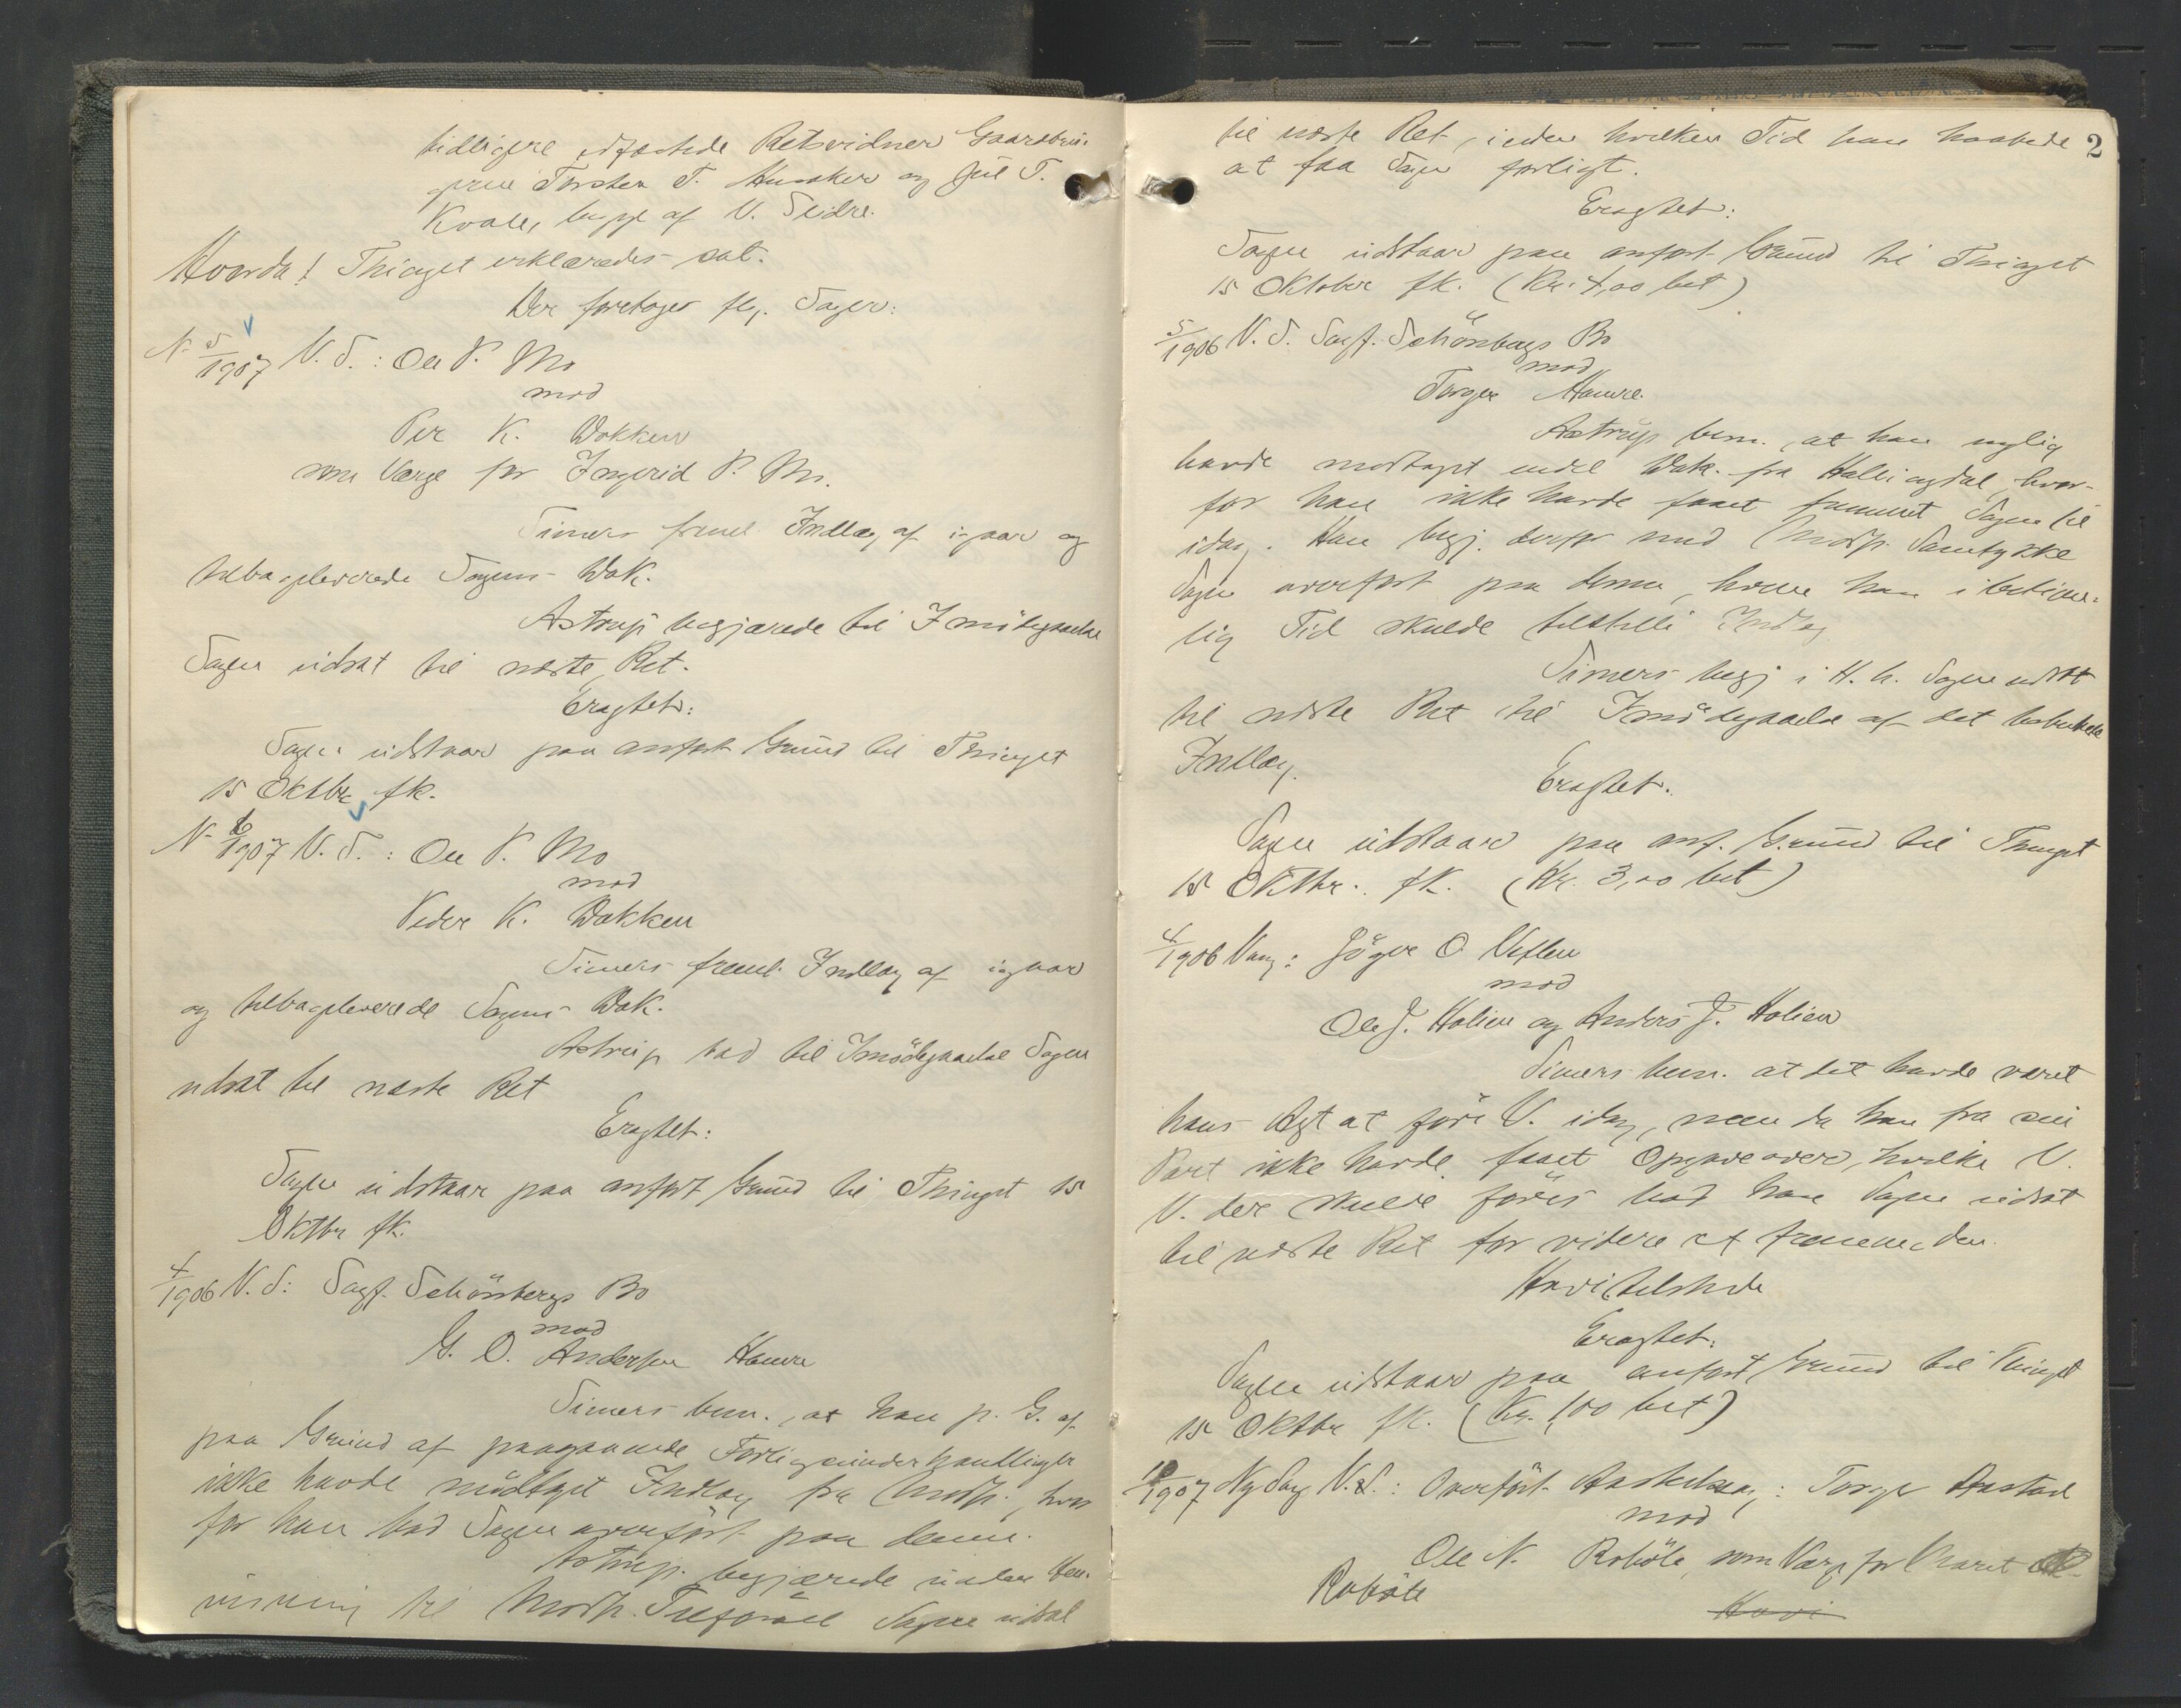 tidligere edfæstede Retsvidner Gaardbru-
gerne Torsten T. Husaker og Jul T.
Kvale, begge af V. Slidre.
Hvorda! Thinget erklæredes sat.
Der foretoges flg. Sager:
N. 5/1907 V. S.: Ole P. Mo
mod
Per K. Dokken
som Værge for Ingerid P. Mo.
Simers freml. Indlæg af igaar og
tilbageleverede Sagens Dok.
Astrup begjærede til Imödegaaelse
Sagen udsat til næste Ret.
Eragtet:
Sagen udstaar paa anfört Grund til Thinget
15 Oktbr. fk.
N. 6/1907 V. S.: Ole P. Mo
mod
Peder K. Dokken
Simers freml. Indlæg af igaar
og tilbageleverede Sagens Dok.
Astrup bad til Imödegaaelse Sagen
udsat til næste Ret
Eragtet:
Sagen udstaar paa anfört Grund til Thinget 15
Oktbr fk.
4/1906 V. S: Sagf. Schönbergs Bo
mod
G. O. Andersen Hamre
Simers bem., at han p. G. af
paa Grund af paagaaende Forligsunderhandlinger
ikke havde modtaget Indlæg fra Modp., hvor
for han bad Sagen overfört paa denne.
Astrup. begjærede under Hen-
visning til Modp. Tilförsel Sagen udsat
2
til næste Ret, inden hvilken Tid han haabede
at faa Sagen forligt.
Eragtet:
Sagen udstaar paa anfört Grund til Thinget
15 Oktober fk. (Kr. 4,00 bet)
5/1906 V. S. Sagf. Schönbergs Bo
mod
Torger Hamre.
Astrup bem., at han nylig
havde modtaget endel Dok. fra Hallingdal, hvor-
for han ikke havde faaet fremmet Sagen til
idag. Han begj. derfor med Modp. Samtykke
Sagen overfört paa denne, hvem han i betime-
lig Tid skulde tilstille Indlæg
Simers begj i H. h. Sagen udsat
til næste Ret til Imödegaaelse af det bebudede
Indlæg.
Eragtet.
Sagen udstaar paa anf. Grund til Thinget
15 Oktbr. fk. (Kr. 3,00 bet)
4/1906 Vang: Jöger O. Veflen
mod
Ole J. Holien og Anders J. Holien
Simers bem. at det havde været
hans Agt at före V. idag, men da han fra sin
Part ikke havde faaet Opgave over, hvilke V.
V. der skulde föres bad han Sagen udsat
til næste Ret for videre at fremme den.
Havi tilstede
Eragtet:
Sagen udstaar paa anfört Grund til Thinget
15 Oktbr fk. (Kr. 1,00 bet)
10/1907 Ny Sag V. S.: Overfört : Torger Aastad
mod
Ole N. Roböle, som Værge for Marit
Roböle
Havi